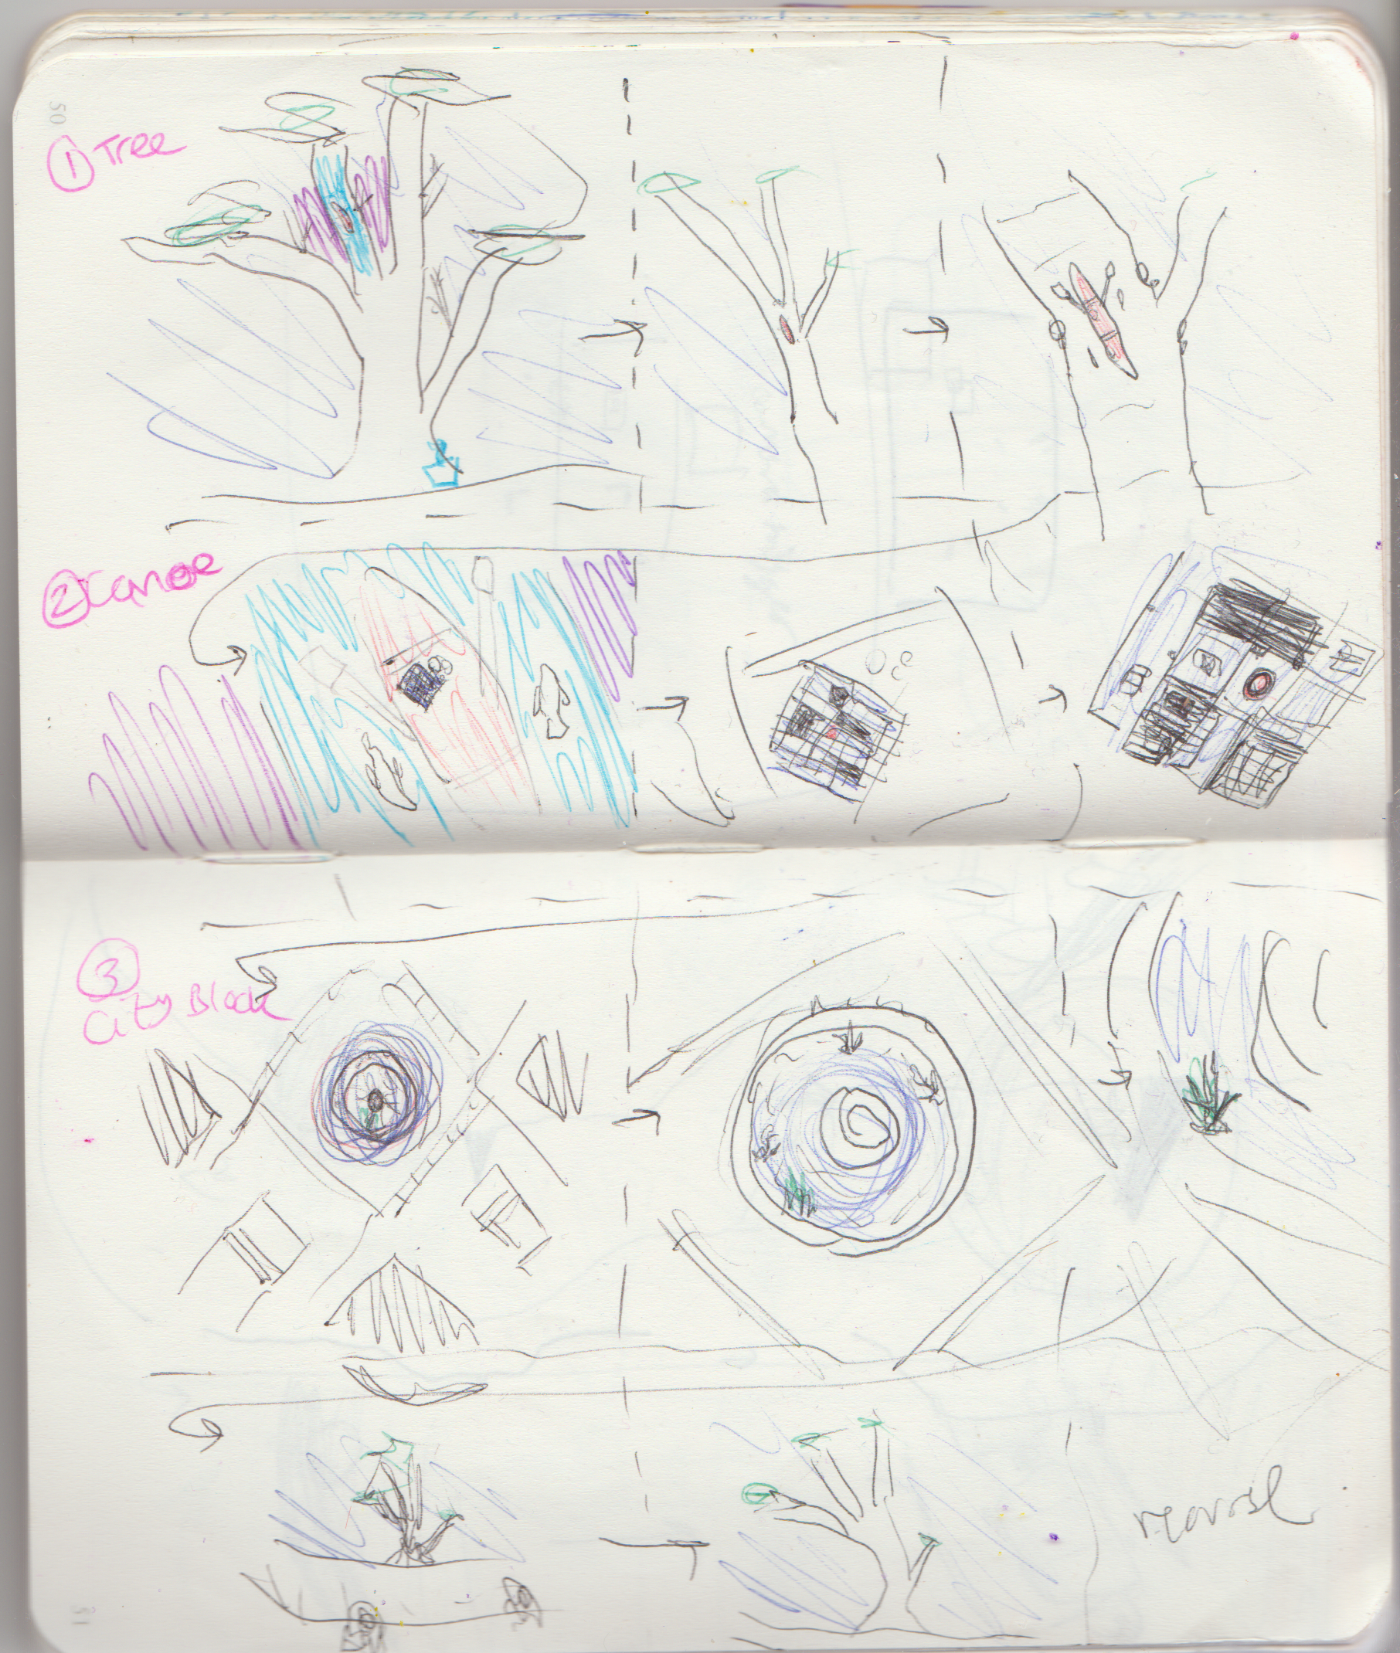 50
① Tree
② Canoe
③
City Block
reversal
51